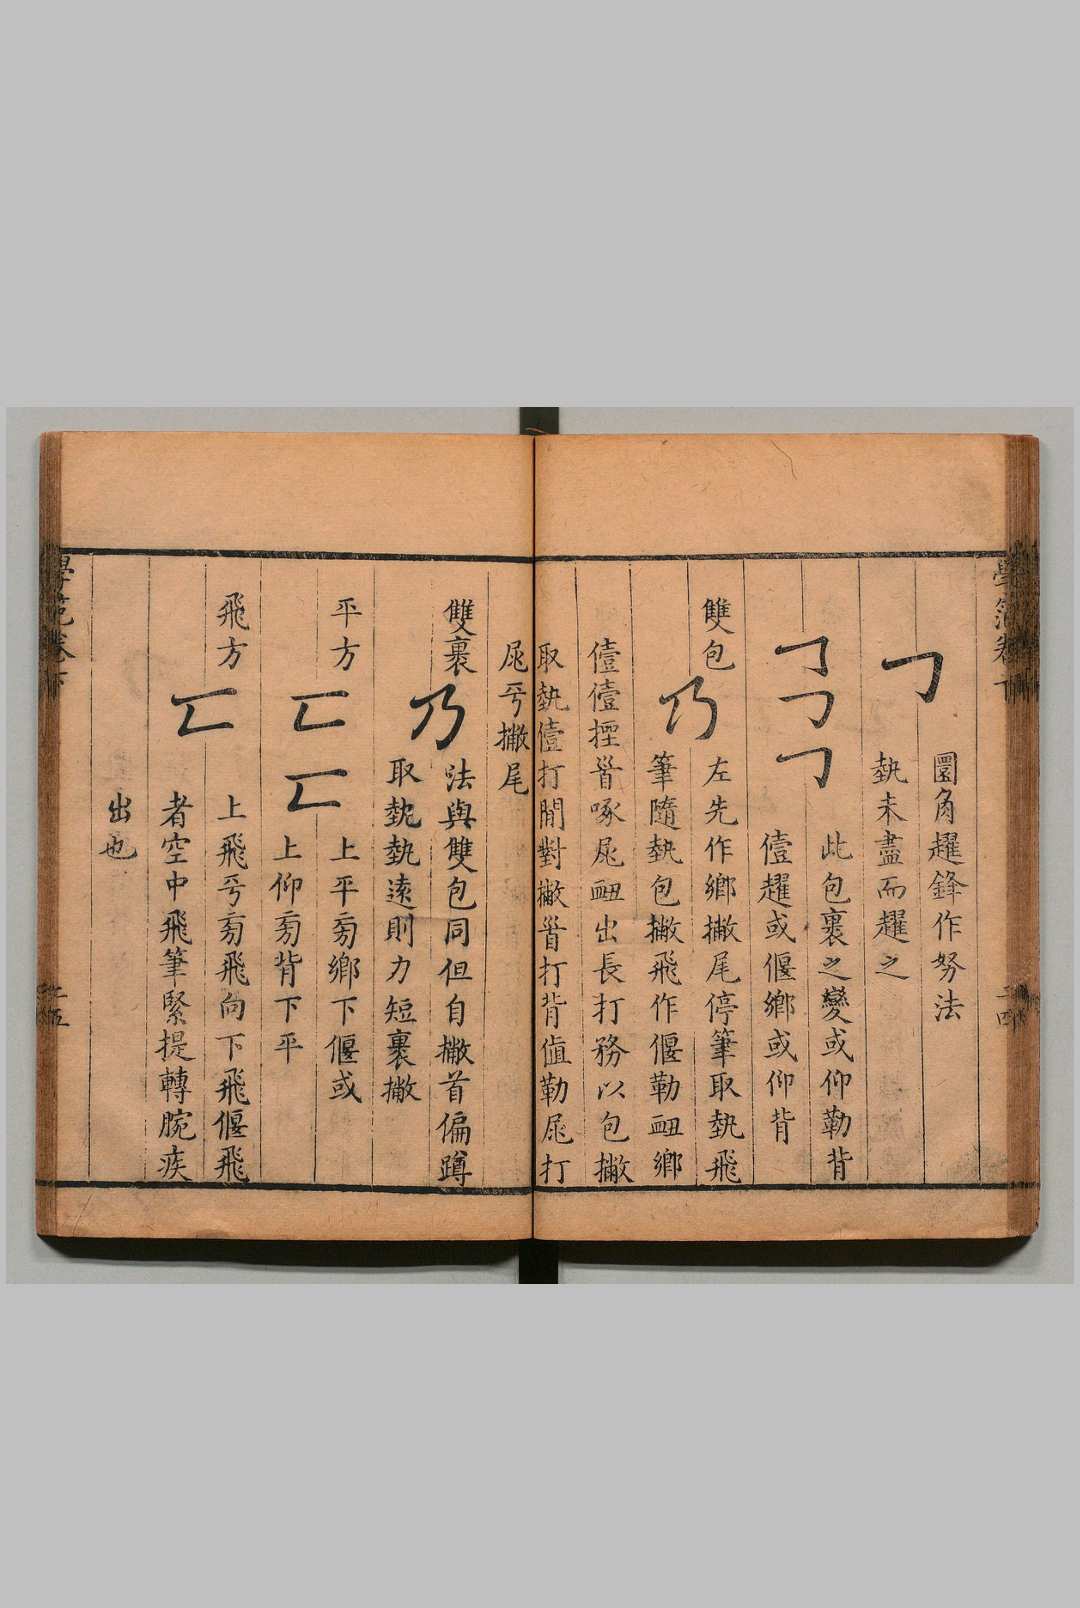 學範卷下
二四
圜角趯鋒作努法
埶未盡而趯之
此包裹之變或仰勒背
僐趯或偃鄉或仰背
雙包
左先作鄉撇尾停筆取埶飛
筆隨埶包撇飛作偃勒衄鄉
僐僐㨕䭫啄㞑衄出長打務以包撇
取埶僐打閒對撇䭫打背值勒㞑打
㞑㔻撇尾
雙裹
法與雙包同但自撇首偏蹲
取埶埶遠則力短裹撇
平方
上平㫄鄉下偃或
上仰㫄背下平
飛方
上飛㔻㫄飛向下飛偃飛
者空中飛筆緊提轉腕疾
出也
學範卷下
二五